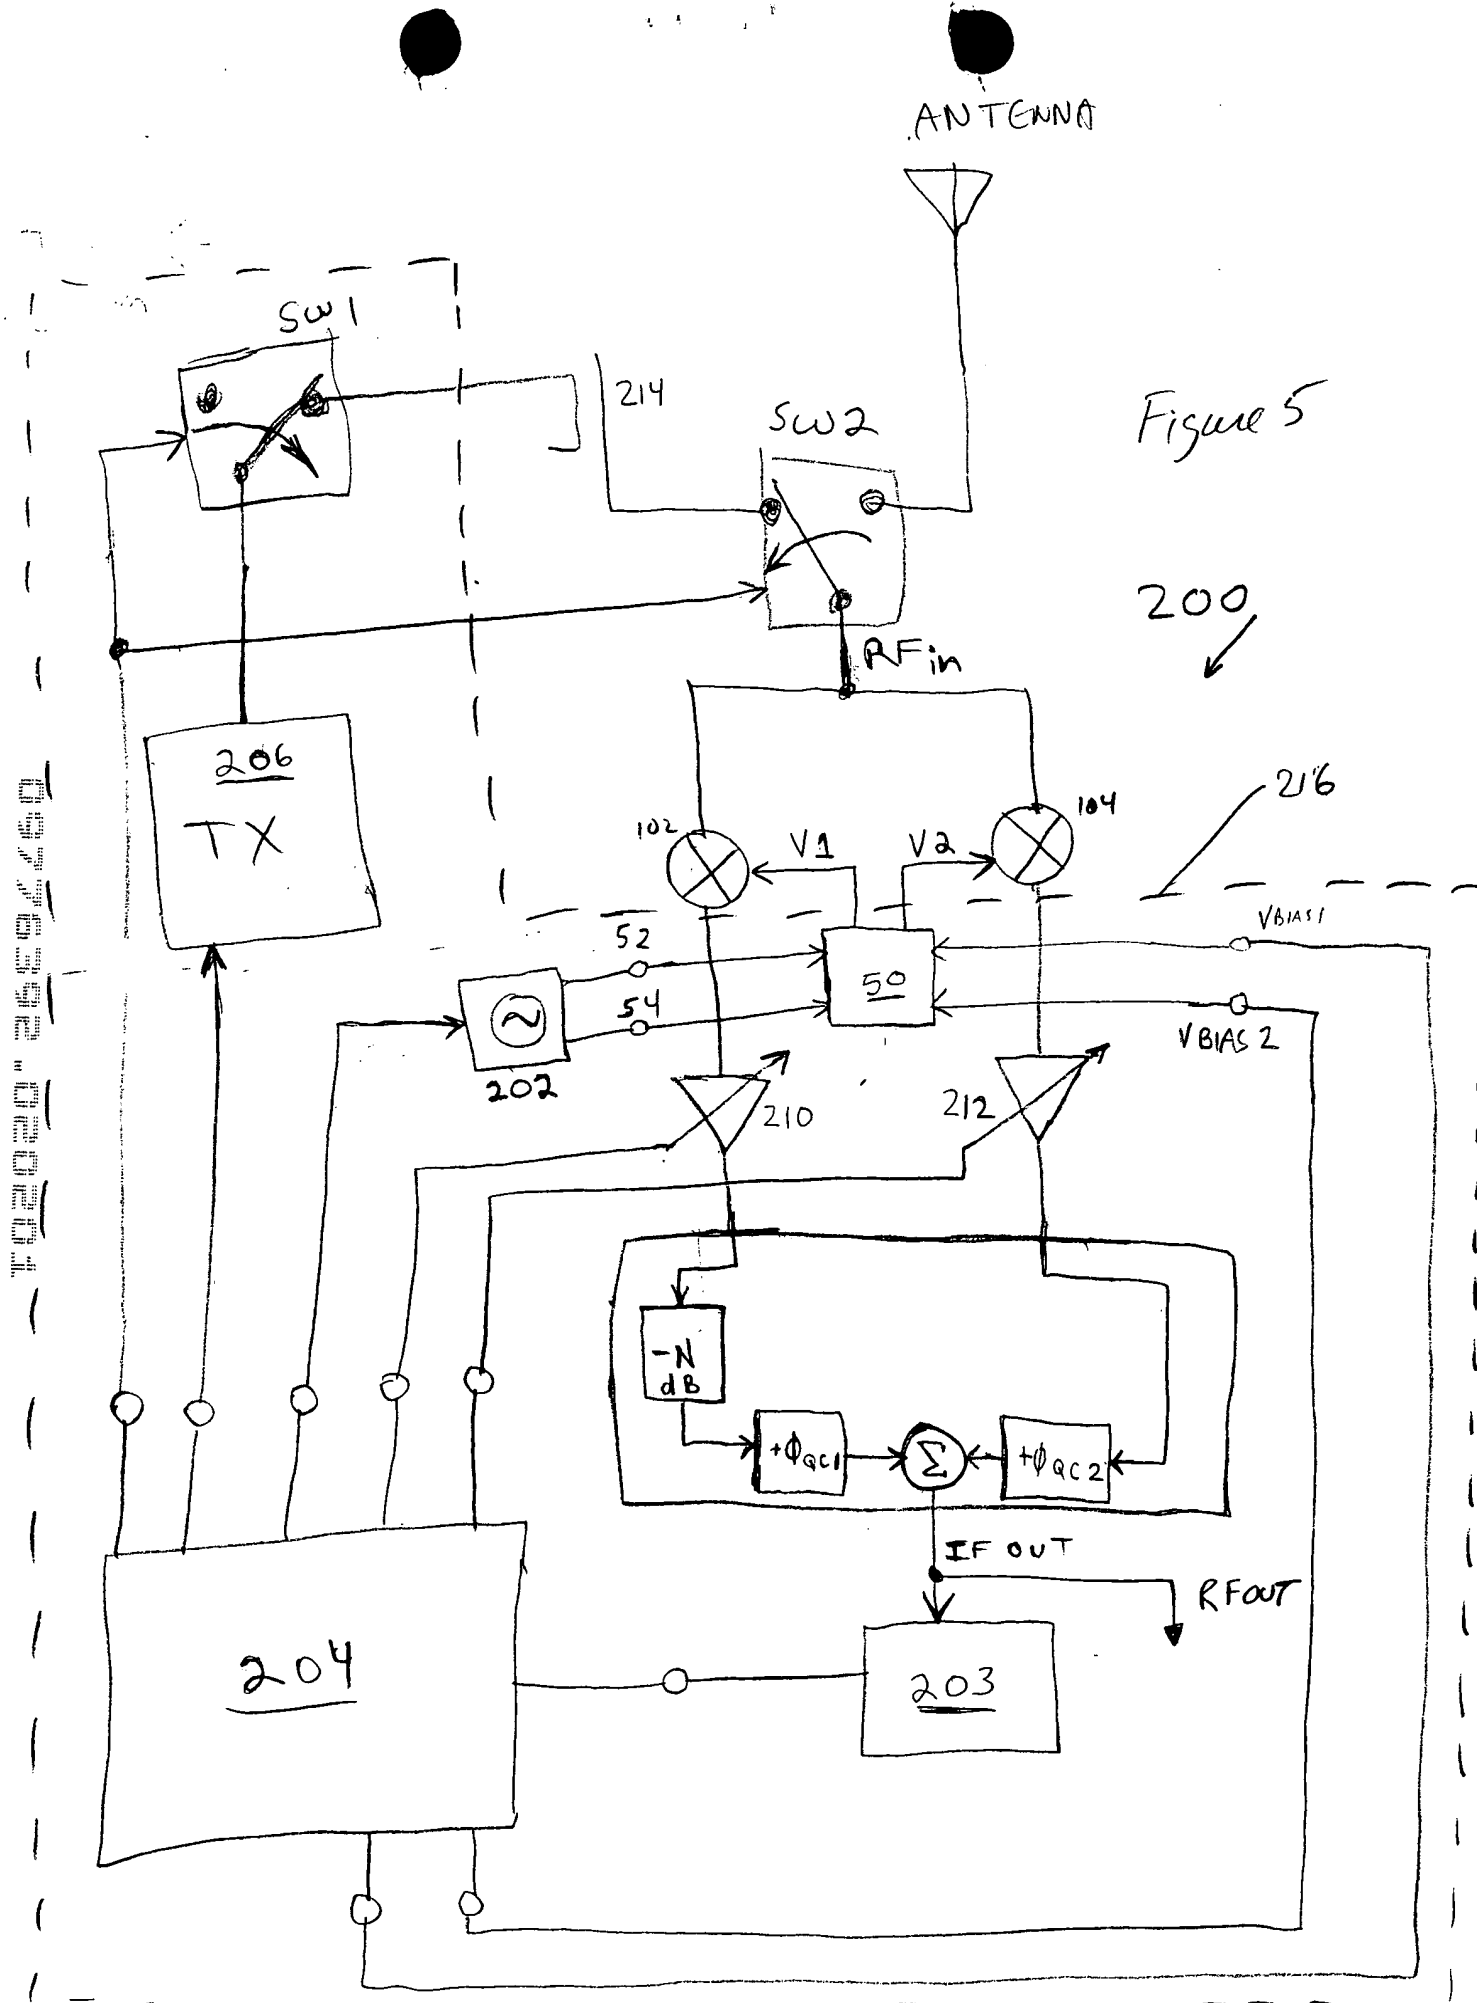 ANTENNA
SW1
214
SW2
Figure 5
200
RFin
206
TX
216
102
104
V1
V2
52
VBIAS1
50
54
VBIAS 2
202
210
212
-N
dB
+ΦQC1
Σ
+ΦQC2
IF OUT
RFOUT
204
203
09789352.020201